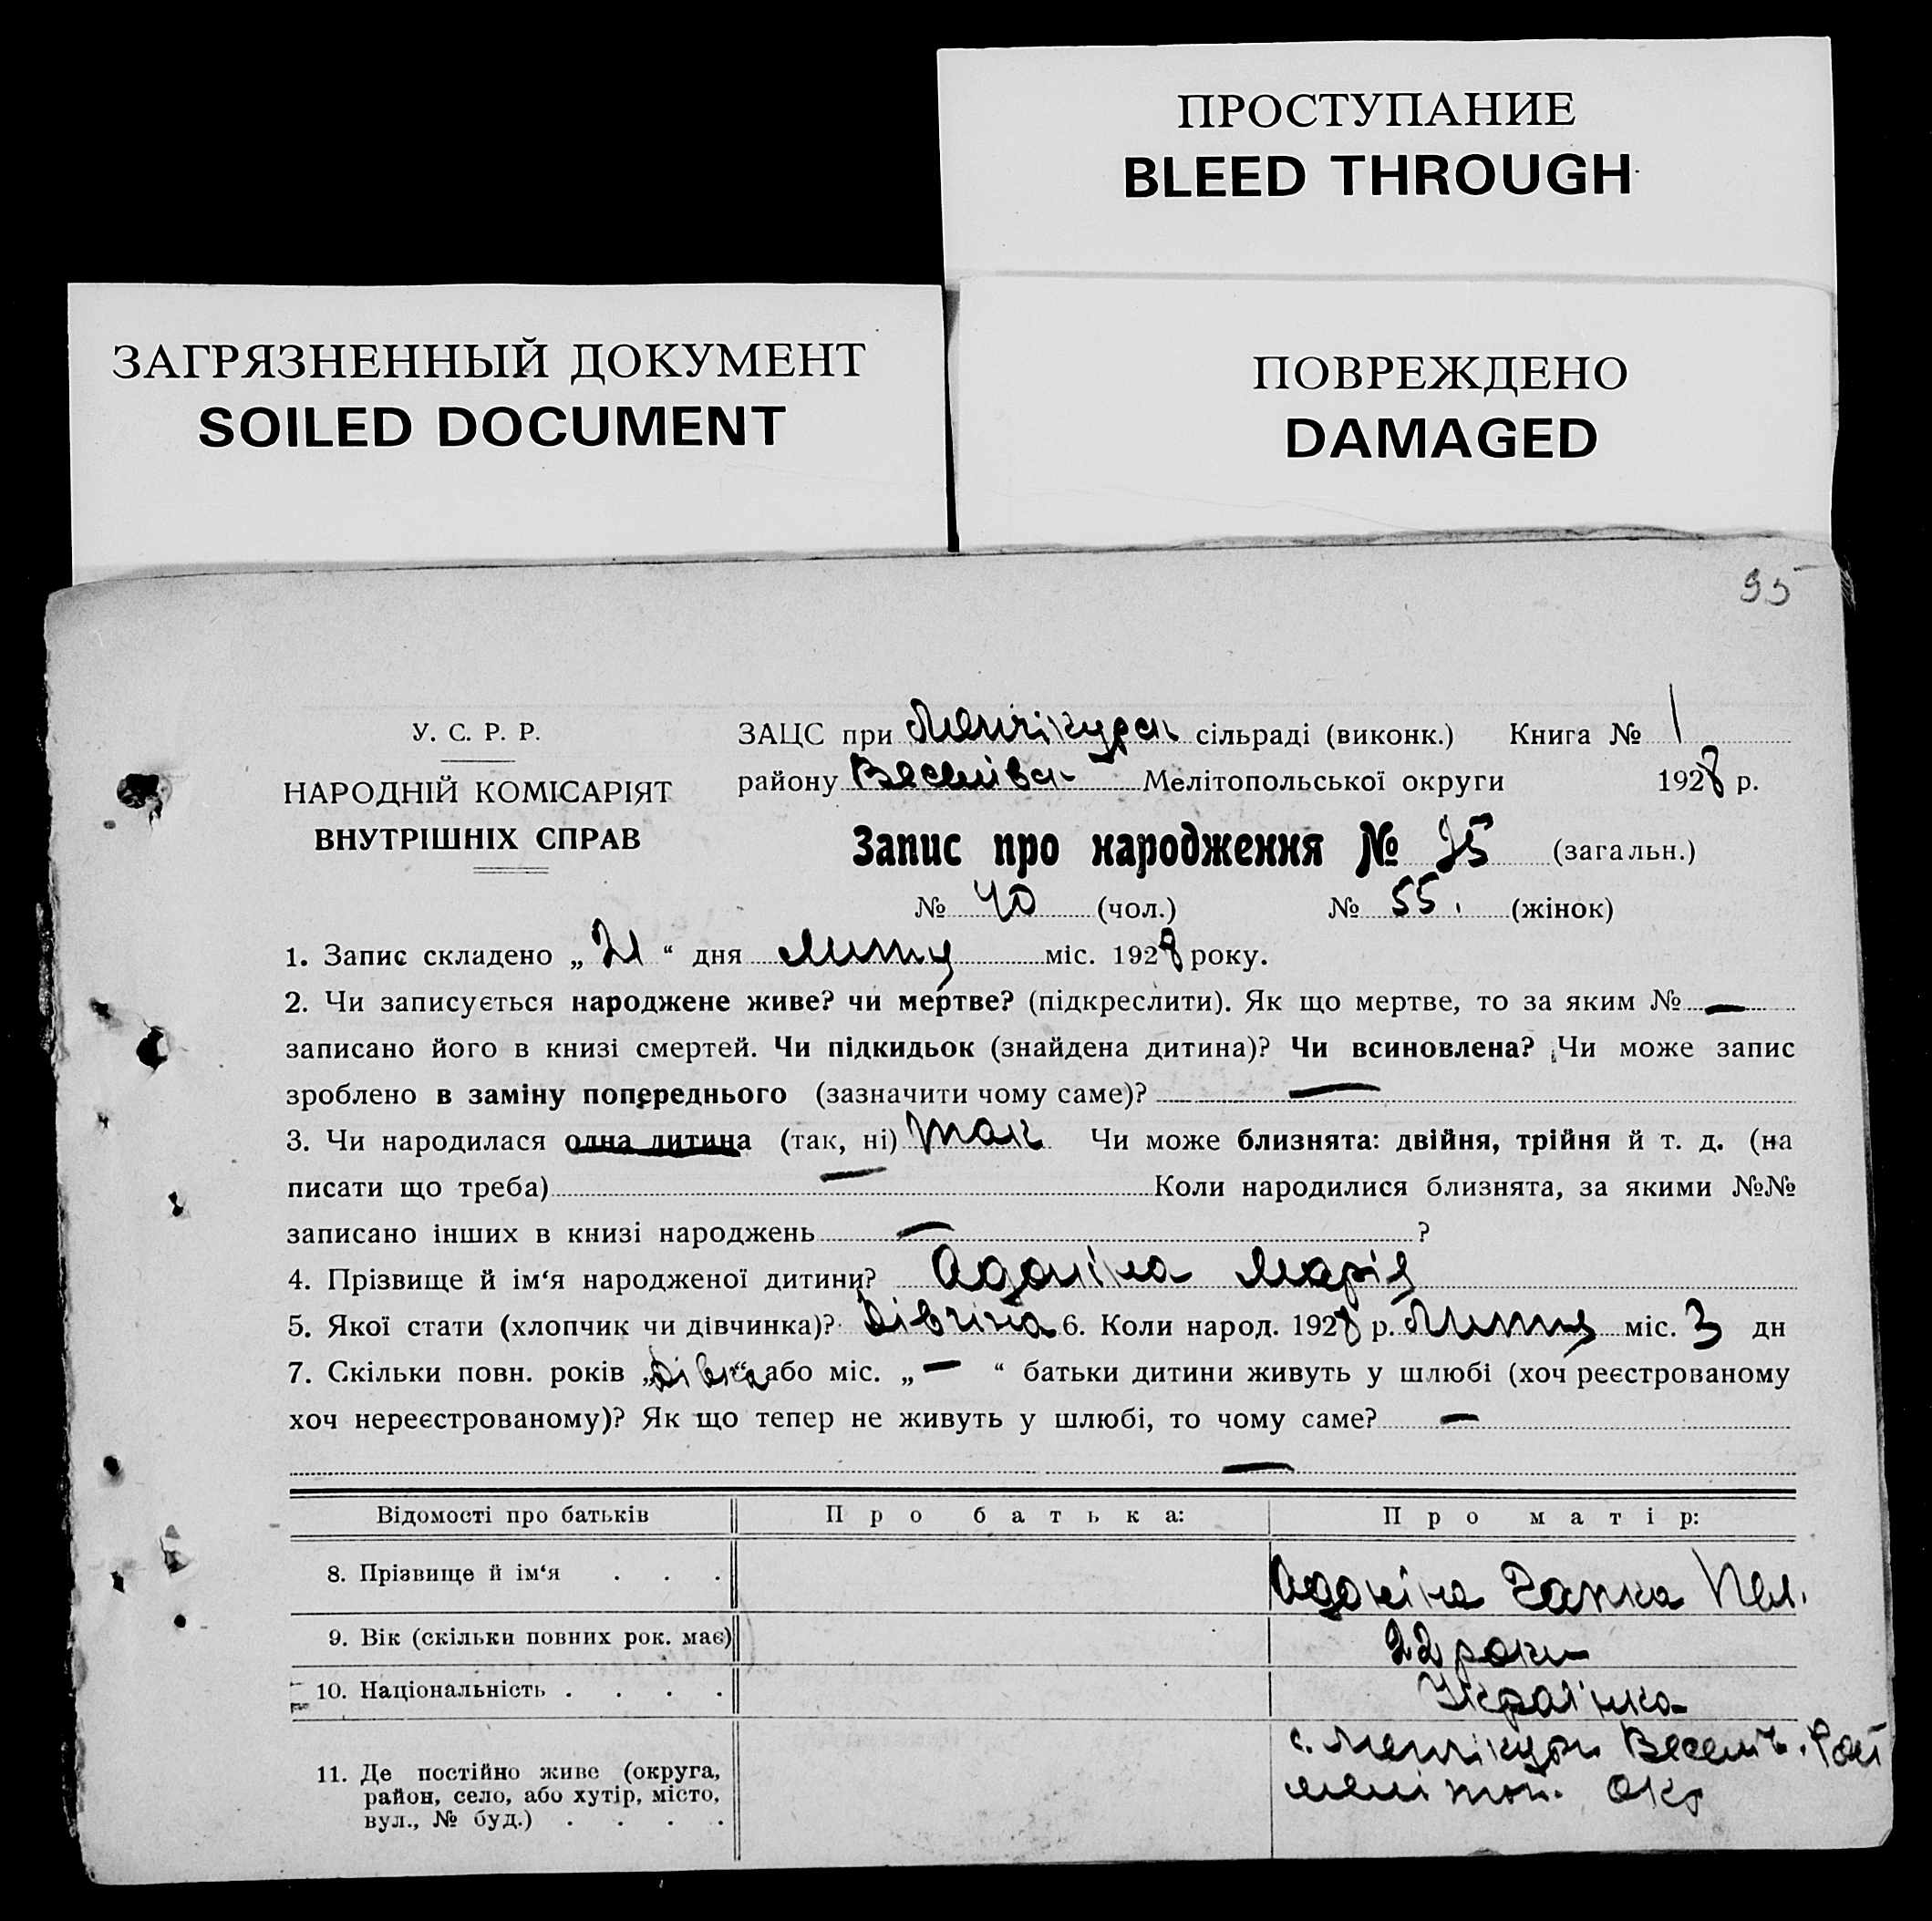 ПРОСТУПАНИЕ
BLEED THROUGH
ЗАГРЯЗНЕННЫЙ ДОКУМЕНТ
SOILED DOCUMENT
ПОВРЕЖДЕНО
DAMAGED
95
У. С. Р. Р.
НАРОДНІЙ КОМІСАРІЯТ
ВНУТРІШНІХ СПРАВ
ЗАЦС при Менчікурск сільраді (виконк.) Книга № 1
району Веселівск Мелітопольської округи 1928 р.
Запис про народження № 95 (загальн.)
№ 40 (чол.) № 55. (жінок)
1. Запис складено „ 21 “ дня лютц міс. 1928 року.
2. Чи записується народжене живе? чи мертве? (підкреслити). Як що мертве, то за яким № —
записано його в книзі смертей. Чи підкидьок (знайдена дитина)? Чи всиновлена? Чи може запис
зроблено в заміну попереднього (зазначити чому саме)? —
3. Чи народилася одна дитина (так, ні) так Чи може близнята: двійня, трійня й т. д. (на
писати що треба) — Коли народилися близнята, за якими №№
записано інших в книзі народжень — ?
4. Прізвище й ім‘я народженої дитини? Адоніна Марія
5. Якої стати (хлопчик чи дівчинка)? Дівчіна 6. Коли народ. 1928 р. міс. 3 дн
7. Скільки повн. років „ “ або міс. „ — “ батьки дитини живуть у шлюбі (хоч реєстрованому
хоч нереєстрованому)? Як що тепер не живуть у шлюбі, то чому саме? —
—
Відомості про батьків Про батька: Про матір:
8. Прізвище й ім‘я . . . Адоніна Ганка Пел.
9. Вік (скільки повних рок. має) 22 роки
10. Національність . . . . Українка
11. Де постійно живе (округа,
район, село, або хутір, місто,
вул., № буд.) . . . .
с. Менчікури Веселів. Рай
меліпот. окр